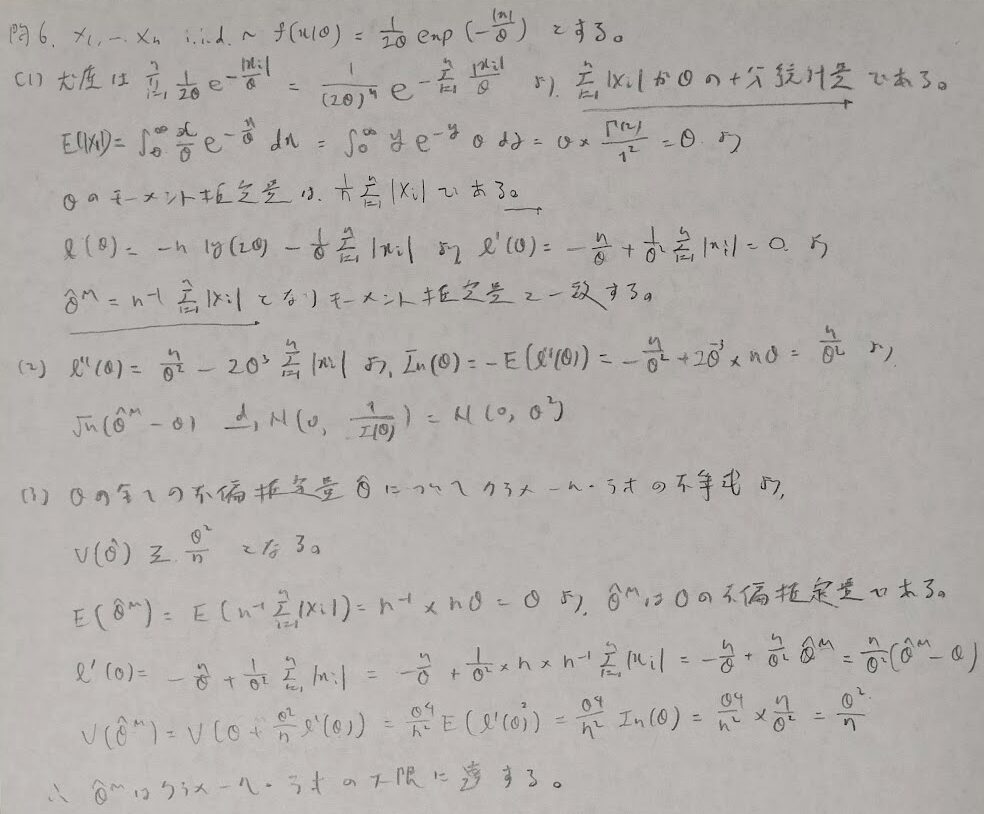 問6. X₁, … Xn i.i.d. ~ f(x|θ) = 1/2θ exp(-|x|/θ) とする。
(1) 尤度は ∏_{i=1}^{n} 1/2θ e^{-|xi|/θ} = 1/(2θ)^n e^{-∑_{i=1}^{n} |xi|/θ} より, ∑_{i=1}^{n} |xi| がθの十分統計量である。
E(|X₁|) = ∫_0^∞ x/θ e^{-x/θ} dx = ∫_0^∞ y e^{-y} θ dy = θ × Γ(2)/1² = θ. より
θのモーメント推定量は. 1/n ∑_{i=1}^{n} |Xi| である。
ℓ(θ) = -n log(2θ) - 1/θ ∑_{i=1}^{n} |xi| より, ℓ'(θ) = -n/θ + 1/θ² ∑_{i=1}^{n} |xi| = 0. より
θ̂^M = n⁻¹ ∑_{i=1}^{n} |Xi| となりモーメント推定量と一致する。
(2) ℓ''(θ) = n/θ² - 2θ³ ∑_{i=1}^{n} |xi| より, In(θ) = -E(ℓ''(θ)) = -n/θ² + 2θ⁻³ × nθ = n/θ² より,
√n(θ̂^M - θ) →d N(0, 1/I(θ)) = N(0, θ²)
(3) θの全ての不偏推定量θ̂についてクラメール・ラオの不等式より,
V(θ̂) ≧ θ²/n となる。
E(θ̂^M) = E(n⁻¹ ∑_{i=1}^{n} |Xi|) = n⁻¹ × nθ = θ より, θ̂^M はθの不偏推定量である。
ℓ'(θ) = -n/θ + 1/θ² ∑_{i=1}^{n} |xi| = -n/θ + 1/θ² × n × n⁻¹ ∑_{i=1}^{n} |xi| = -n/θ + n/θ² θ̂^M = n/θ² (θ̂^M - θ)
V(θ̂^M) = V(θ + θ²/n ℓ'(θ)) = θ⁴/n² E(ℓ'(θ)²) = θ⁴/n² In(θ) = θ⁴/n² × n/θ² = θ²/n
∴ θ̂^M はクラメール・ラオの下限に達する。